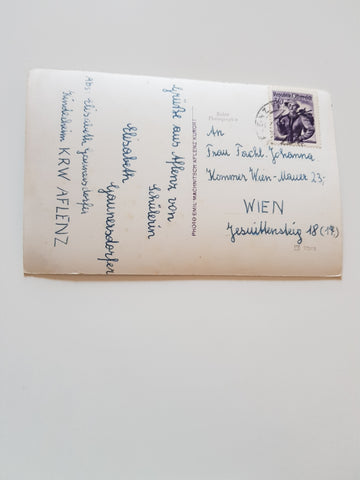 Grüße aus Aflenz von
Schülerin
Elisabeth
Gaunersdorfer
Abs: Elisabeth Gaunersdorfer
Kinderheim KRW AFLENZ
PHOTO EMIL KURORT
REPUBLIK ÖSTERREICH
An
Frau Johanna
Kommer Wien-Mauer 23,
WIEN
Jesuitensteig 18